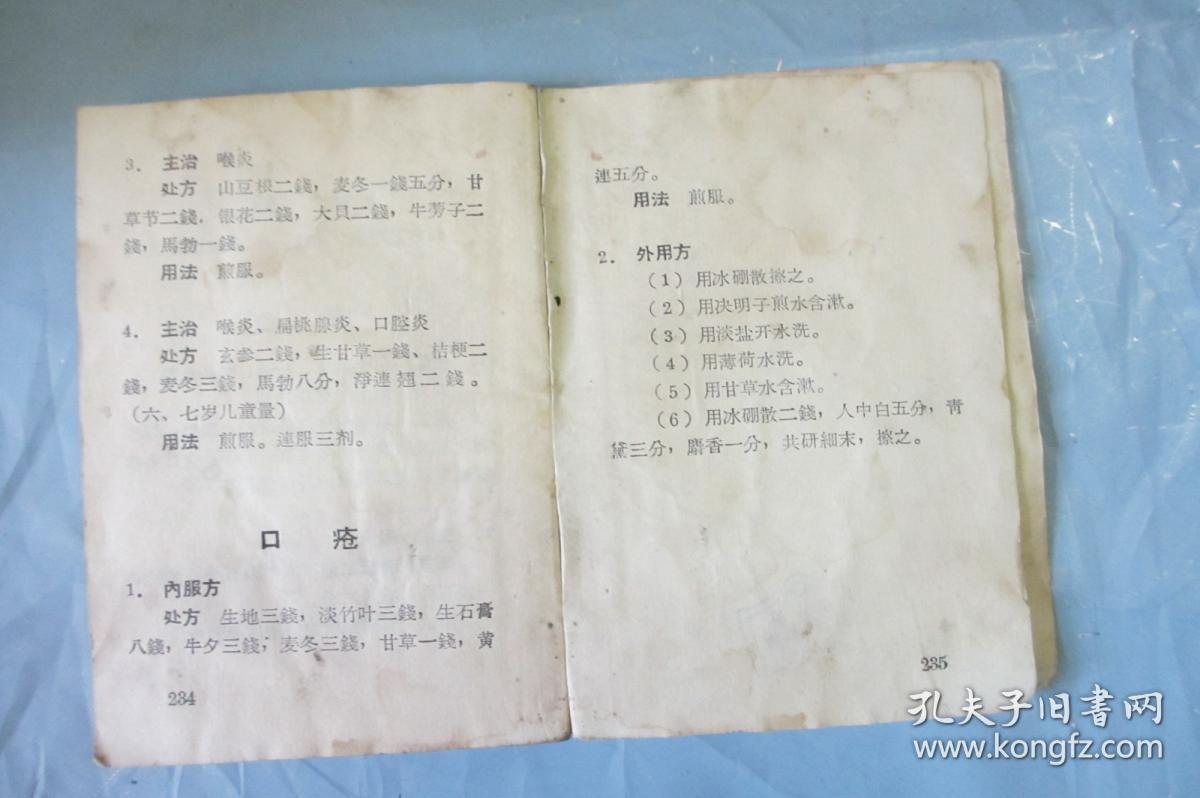 3. 主治 喉炎
处方 山豆根二錢，麦冬一錢五分，甘
草节二錢．银花二錢，大貝二錢，牛蒡子二
錢，馬勃一錢。
用法 煎服。
4. 主治 喉炎、扁桃腺炎、口腔炎
处方 玄参二錢，生甘草一錢、桔梗二
錢，麦冬三錢，馬勃八分，淨連翘二錢。
(六、七岁儿童量)
用法 煎服。連服三剂。
口 疮
1. 內服方
处方 生地三錢，淡竹叶三錢，生石膏
八錢，牛夕三錢，麦冬三錢，甘草一錢，黄
234
連五分。
用法 煎服。
2. 外用方
(1) 用冰硼散擦之。
(2) 用决明子煎水含漱。
(3) 用淡盐开水洗。
(4) 用薄荷水洗。
(5) 用甘草水含漱。
(6) 用冰硼散二錢，人中白五分，青
黛三分，麝香一分，共研細末，擦之。
235
孔夫子旧书网
www.kongfz.com